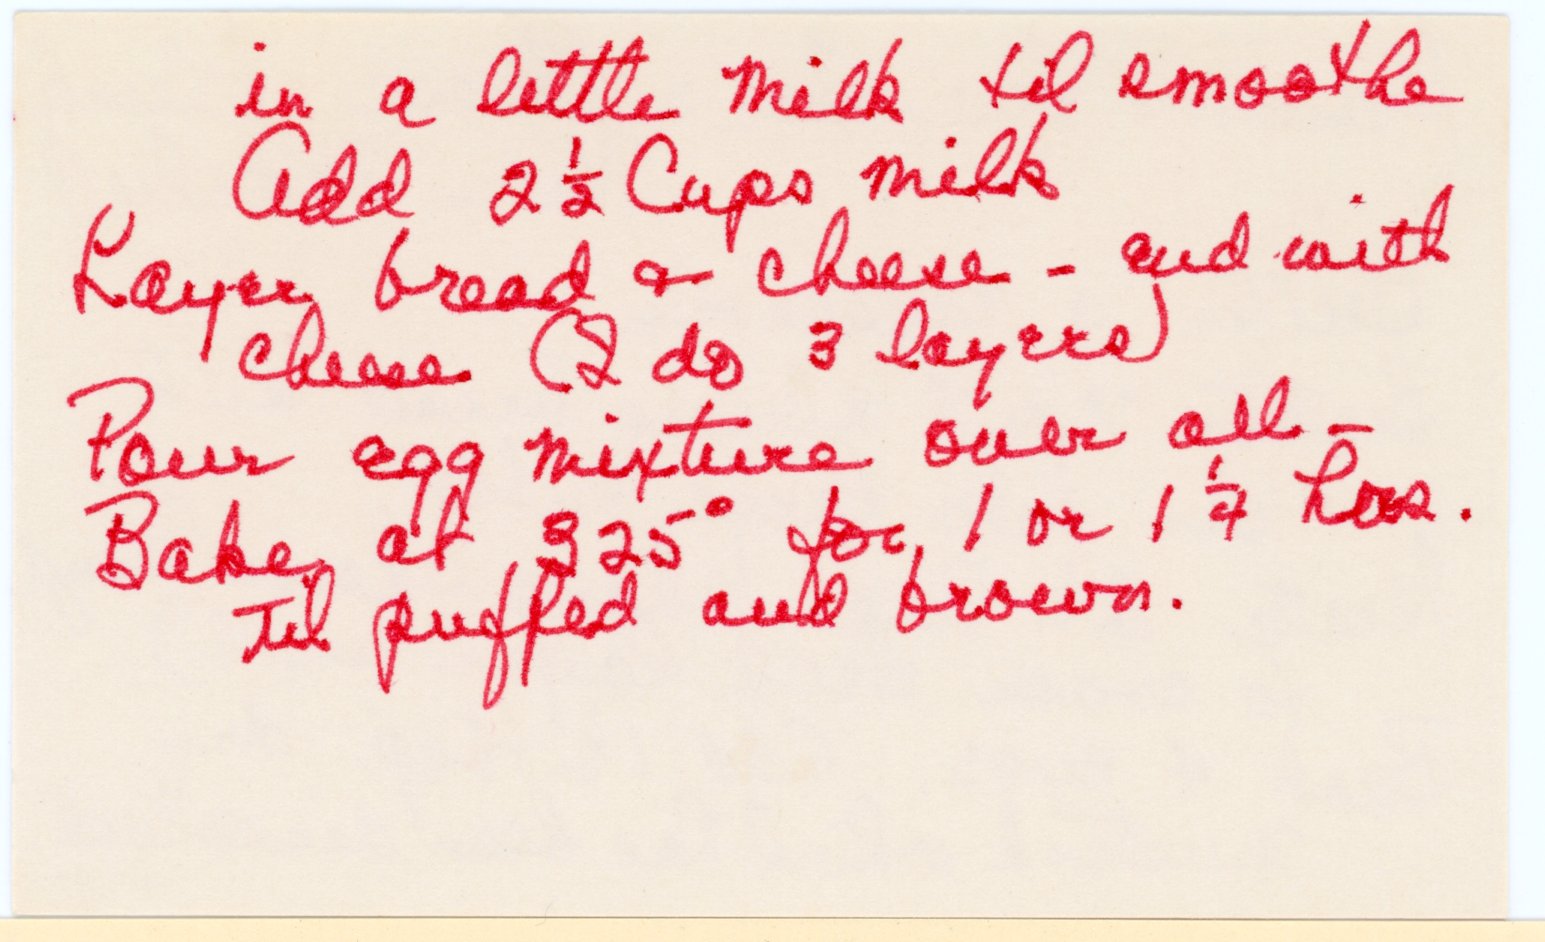 in a little milk til smoothe
Add 2 ½ Cups milk
Layer bread & cheese - end with
cheese (I do 3 layers)
Pour egg mixture over all -
Bake at 325° for 1 or 1 ¼ hors.
til puffed and brown.